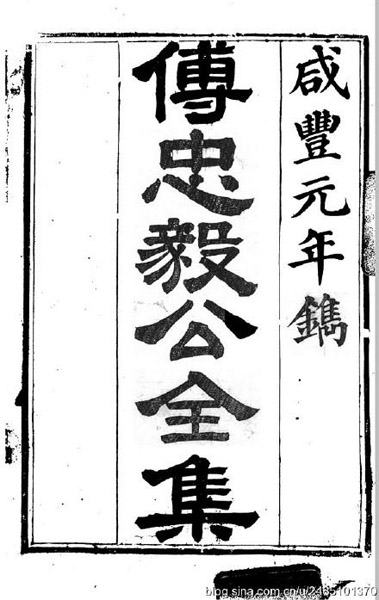 咸豐元年鐫
傅忠毅公全集
blog.sina.com.cn/u/2465101370